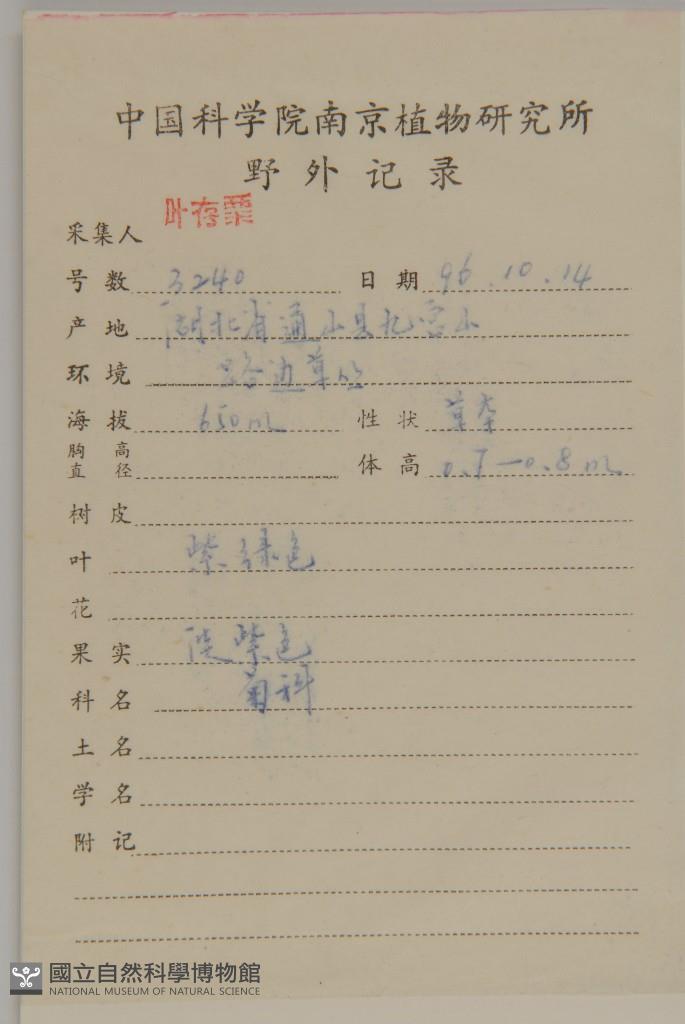 中国科学院南京植物研究所
野外记录
采集人 叶存粟
号数 3240 日期 96.10.14
产地 湖北省通山县九宫山
环境 路边草丛
海拔 650m 性状 草本
胸高直径 体高 0.7-0.8m
树皮
叶 紫绿色
花
果实 淡紫色
科名 菊科
土名
学名
附记
國立自然科學博物館
NATIONAL MUSEUM OF NATURAL SCIENCE